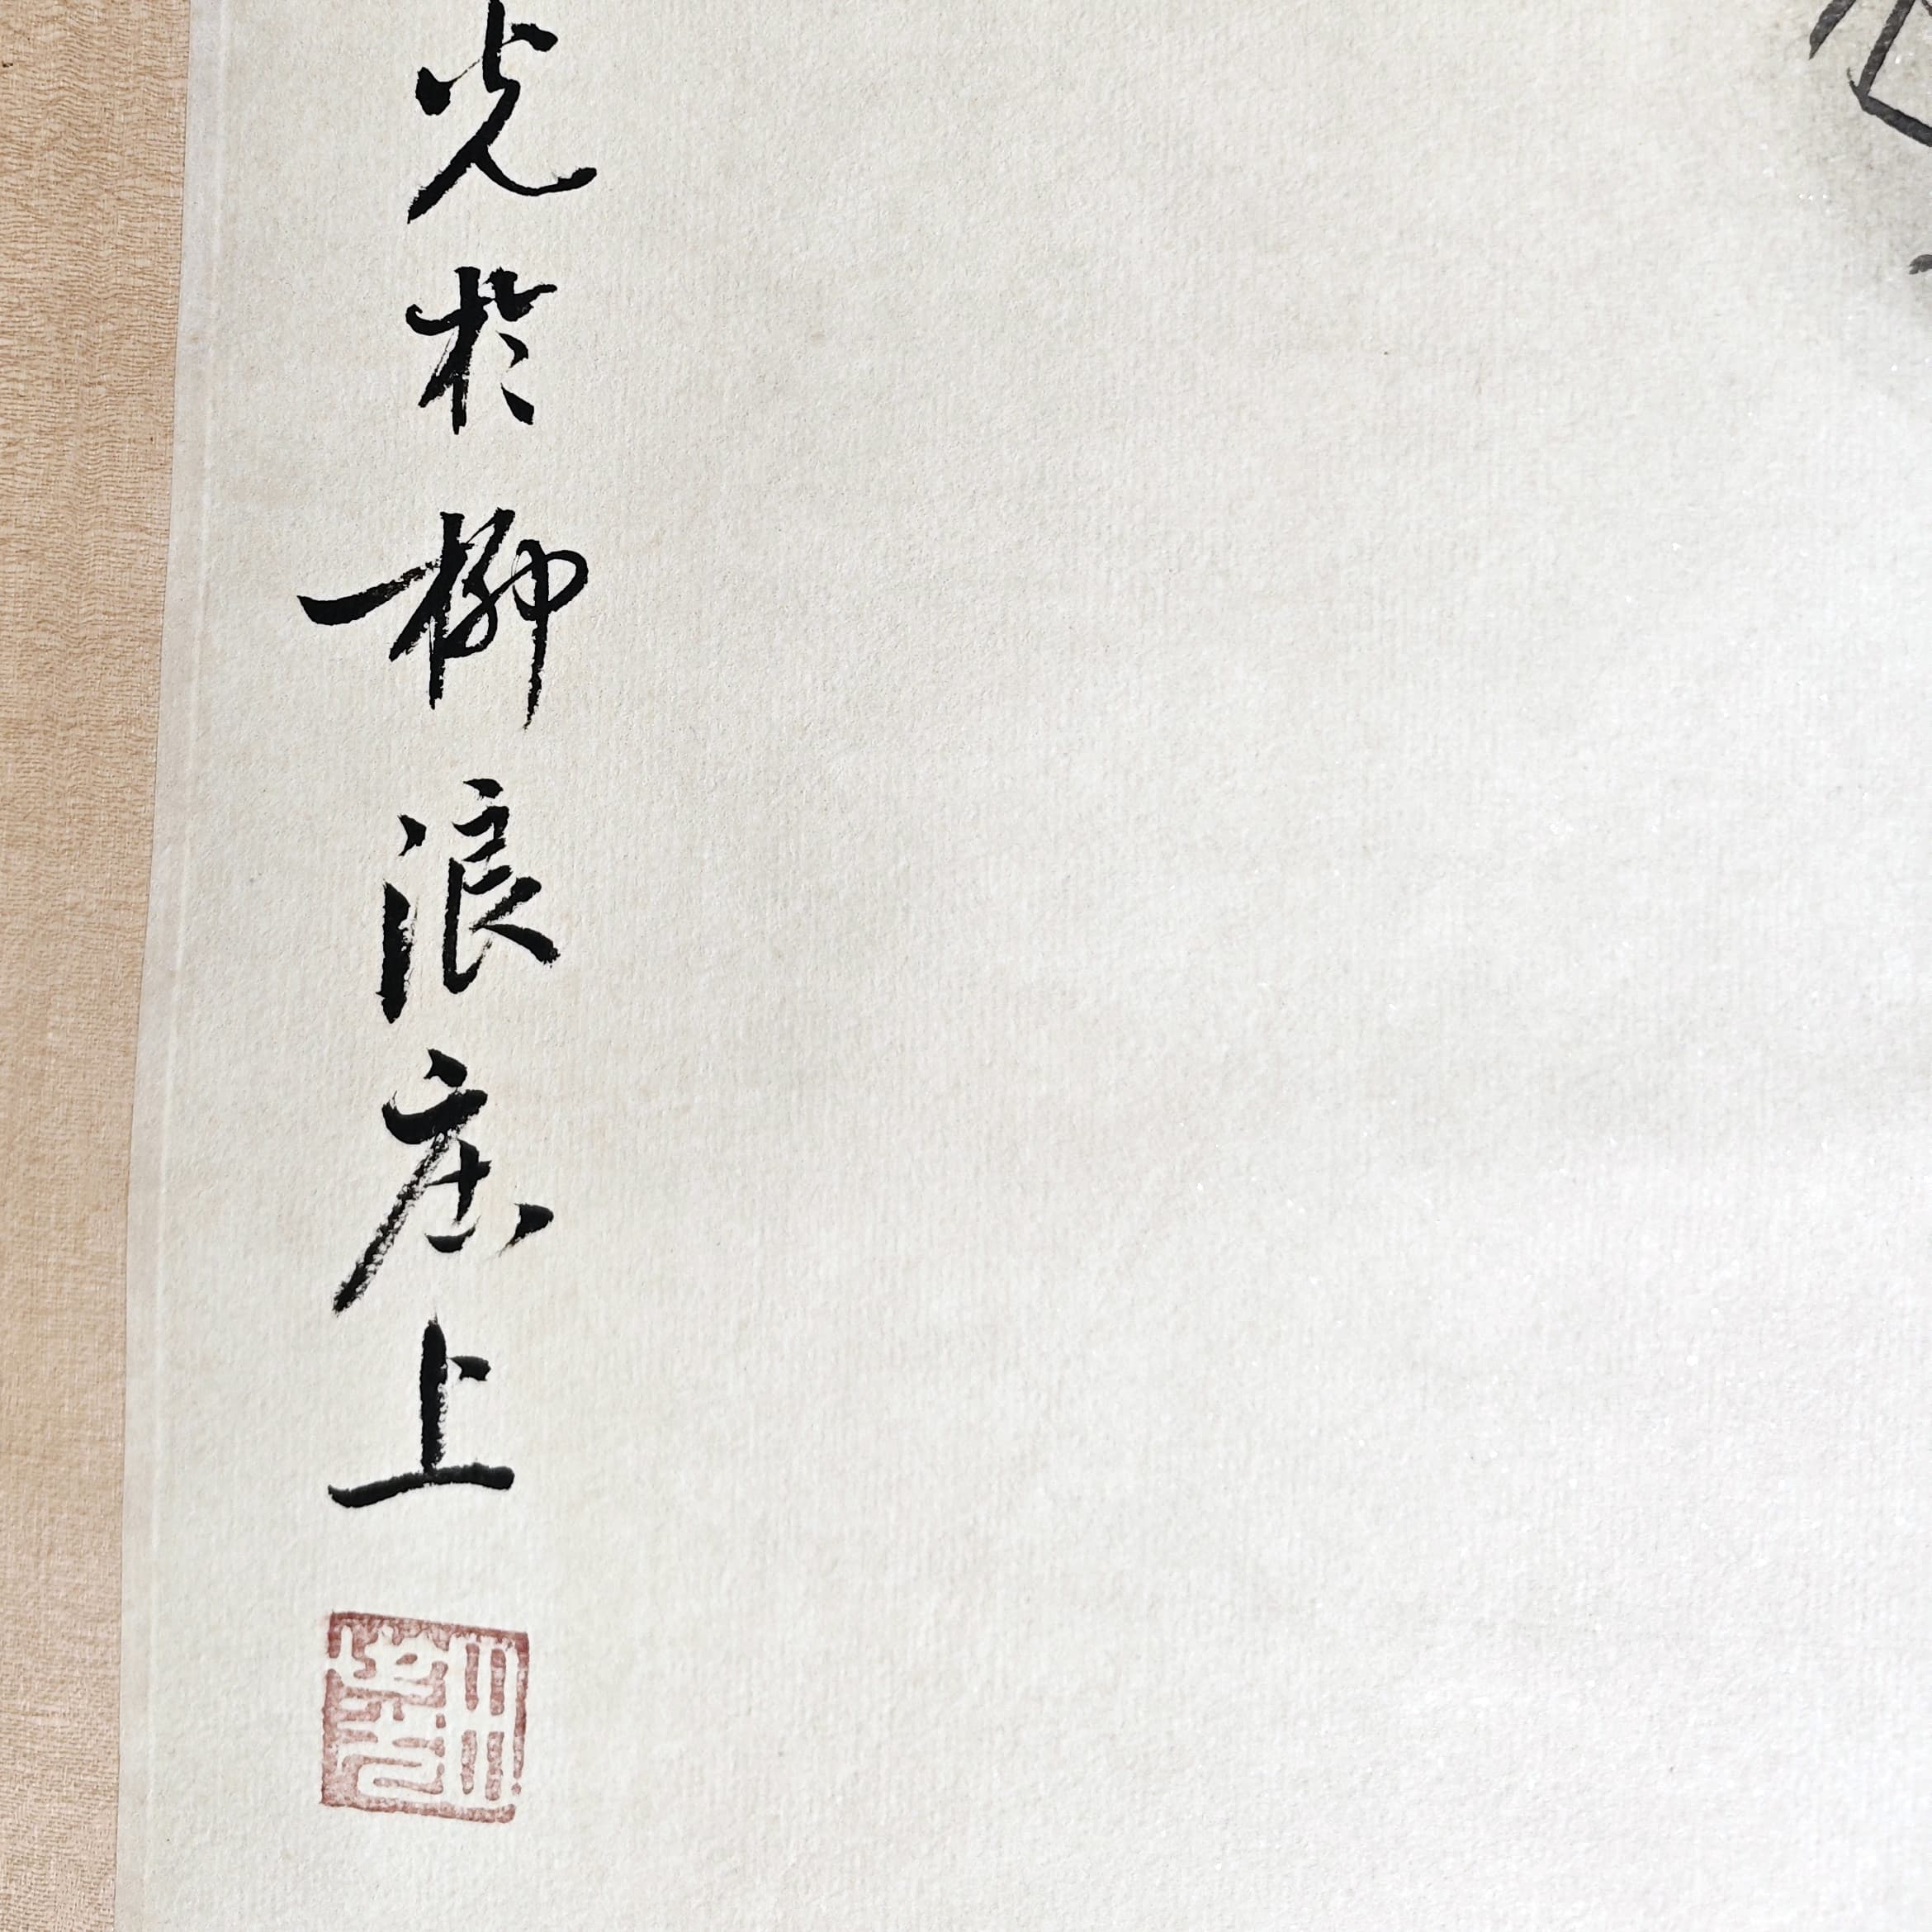 光於柳浪庄上